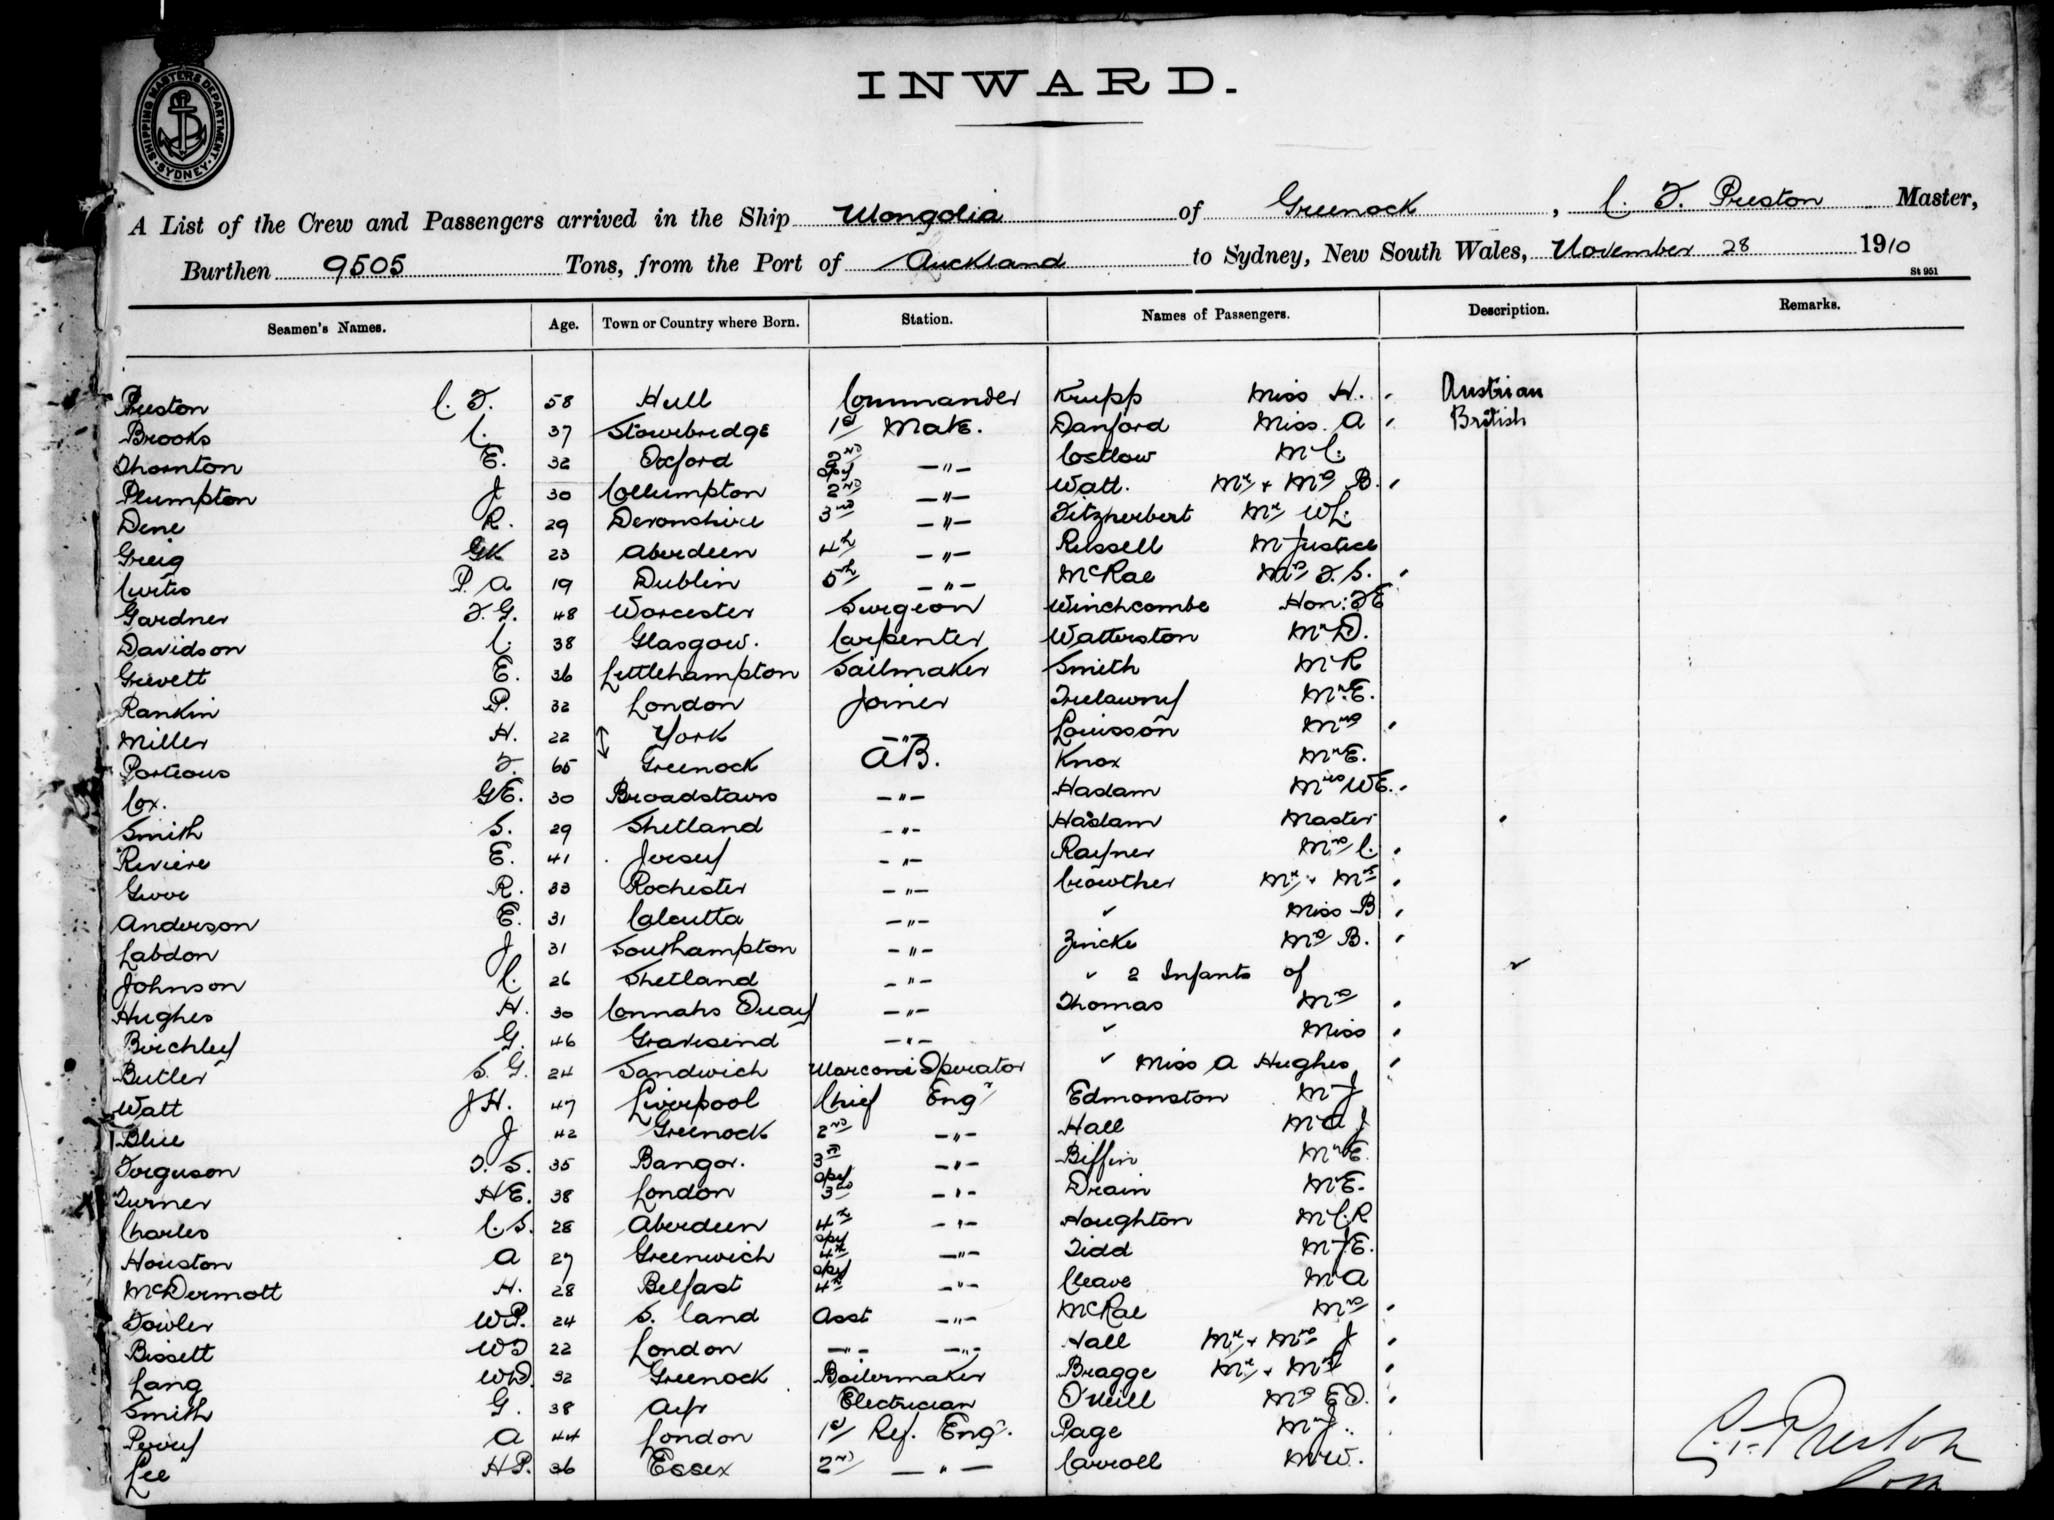 INWARD.
SHIPPING MASTERS DEPARTMENT SYDNEY
A List of the Crew and Passengers arrived in the Ship Mongolia of Greenock, C. F. Preston Master,
Burthen 9505 Tons, from the Port of Auckland to Sydney, New South Wales, November 28 1910
St 951
Seamen's Names. Age. Town or Country where Born. Station. Names of Passengers. Description. Remarks.
Preston C. F. 58 Hull Commander Krupp Miss H. Austrian
Brooks C. 37 Stourbridge 1st Mate. Danford Miss. A British
Thornton E. 32 Oxford 2nd —"— Costlow Mr C.
Plumpton J 30 Collumpton Spy 2nd —"— Watt. Mr + Mrs B.
Dene R. 29 Devonshire 3rd —"— Fitzherbert Mr WL.
Greig GK 23 Aberdeen 4th —"— Russell Mr Justice
Curtis P. A 19 Dublin 5th —"— McRae Mrs F. S.
Gardner F. G. 48 Worcester Surgeon Winchcombe Hon: FE
Davidson C 38 Glasgow. Carpenter Watterston Mr D.
Grevett E. 36 Littlehampton Sailmaker Smith Mr R
Rankin P. 32 London Joiner Trelawny Mr E.
Miller H. 22 York —"— Louisson Mrs
Porteous F. 65 Greenock AB. Knox Mr E.
Cox. GE. 30 Broadstairs —"— Haslam Mrs WE.
Smith S. 29 Shetland —"— Haslam Master
Riviere E. 41 Jersey —"— Rayner Mrs C.
R. 33 Rochester —"— Crowther Mr + Mrs
Anderson E. 31 Calcutta —"— " Miss B
Labdon J 31 Southampton —"— Zincke Mrs B.
Johnson C. 26 Shetland —"— " 2 Infants of
Hughes H. 30 Connahs Quay —"— Thomas Mrs
Birchley G. 46 Gravesend —"— " Miss
Butler S. G. 24 Sandwich Marconi Operator " Miss A Hughes
Watt J H. 47 Liverpool Chief Engr Edmonston Mr J
Blue J 42 Greenock 2nd —"— Hall Mr A J
Ferguson F. S. 35 Bangor. 3rd —"— Biffin Mr E.
Turner HE. 38 London Spy 3rd —"— Drain Mr E.
Charles C. S. 28 Aberdeen 4th —"— Houghton Mr C. R
Houston A 27 Greenwich Spy 4th —"— Tidd Mr J E.
McDermott H. 28 Belfast Spy 4th —"— Cleave Mr A
Fowler WP. 24 S. land Asst —"— McRae Mrs
Bissett 22 London —"— —"— Hall Mr + Mrs J
Lang WD. 32 Greenock Boilermaker Bragge Mr + Mrs
Smith G. 38 Ayr Electrician O'Neill Mrs ED.
Perry A 44 London 1st Ref. Engr. Page Mr J.
Lee HP. 36 Essex 2nd —"— Carroll Mr W.
C. F. Preston
Com